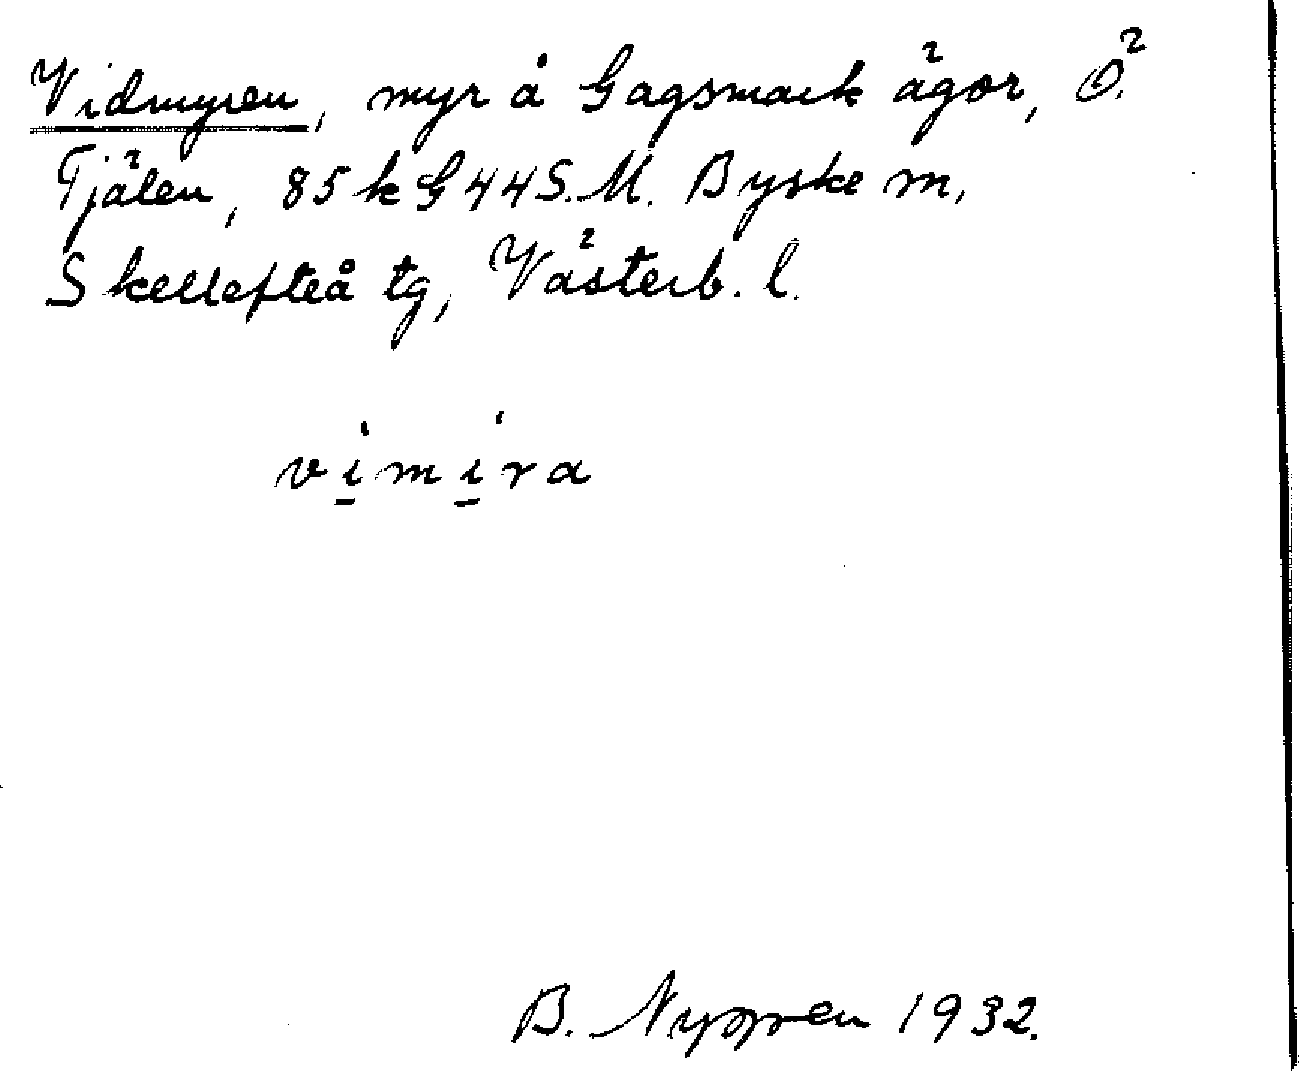 Vidmyren, myr å Gagsmark ägor, Ö.
Tjälen, 85 k G 44 S.M. Byske m.
Skellefteå tg, Västerb. l.
vi̠mi̠ra
B. 1932.